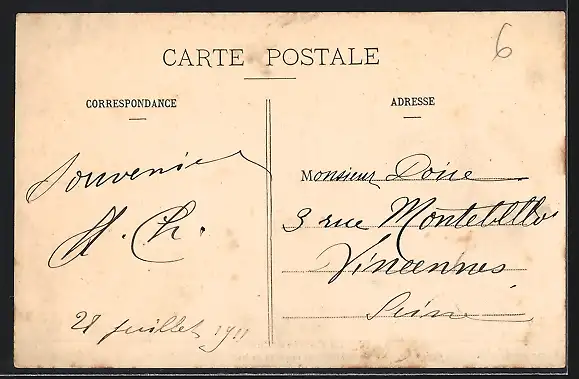 CARTE POSTALE
6
CORRESPONDANCE
ADRESSE
Souvenir
H. Ch.
28 juillet 1911
Monsieur Doue
3 rue Montebello
Vincennes
Seine